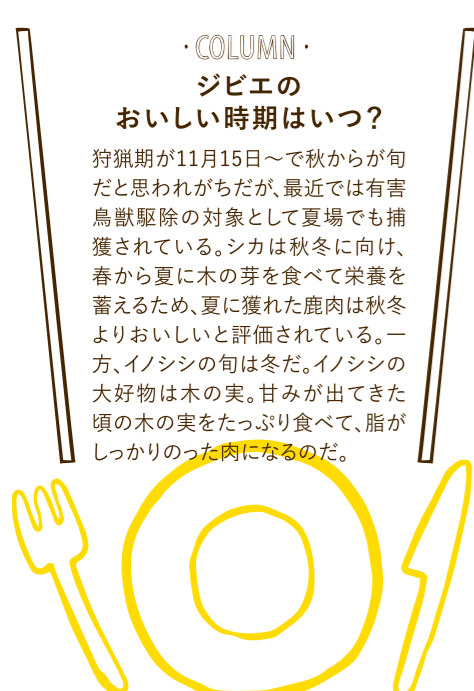 ・COLUMN・
ジビエの
おいしい時期はいつ？
狩猟期が11月15日〜で秋からが旬
だと思われがちだが、最近では有害
鳥獣駆除の対象として夏場でも捕
獲されている。シカは秋冬に向け、
春から夏に木の芽を食べて栄養を
蓄えるため、夏に獲れた鹿肉は秋冬
よりおいしいと評価されている。一
方、イノシシの旬は冬だ。イノシシの
大好物は木の実。甘みが出てきた
頃の木の実をたっぷり食べて、脂が
しっかりのった肉になるのだ。